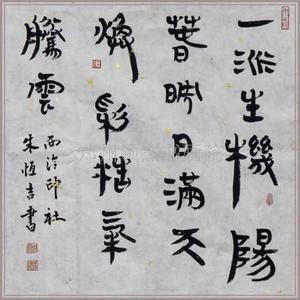 一派生機陽
春時日滿天
煥彩牲氣
騰雲
西泠印社
朱恆吉書